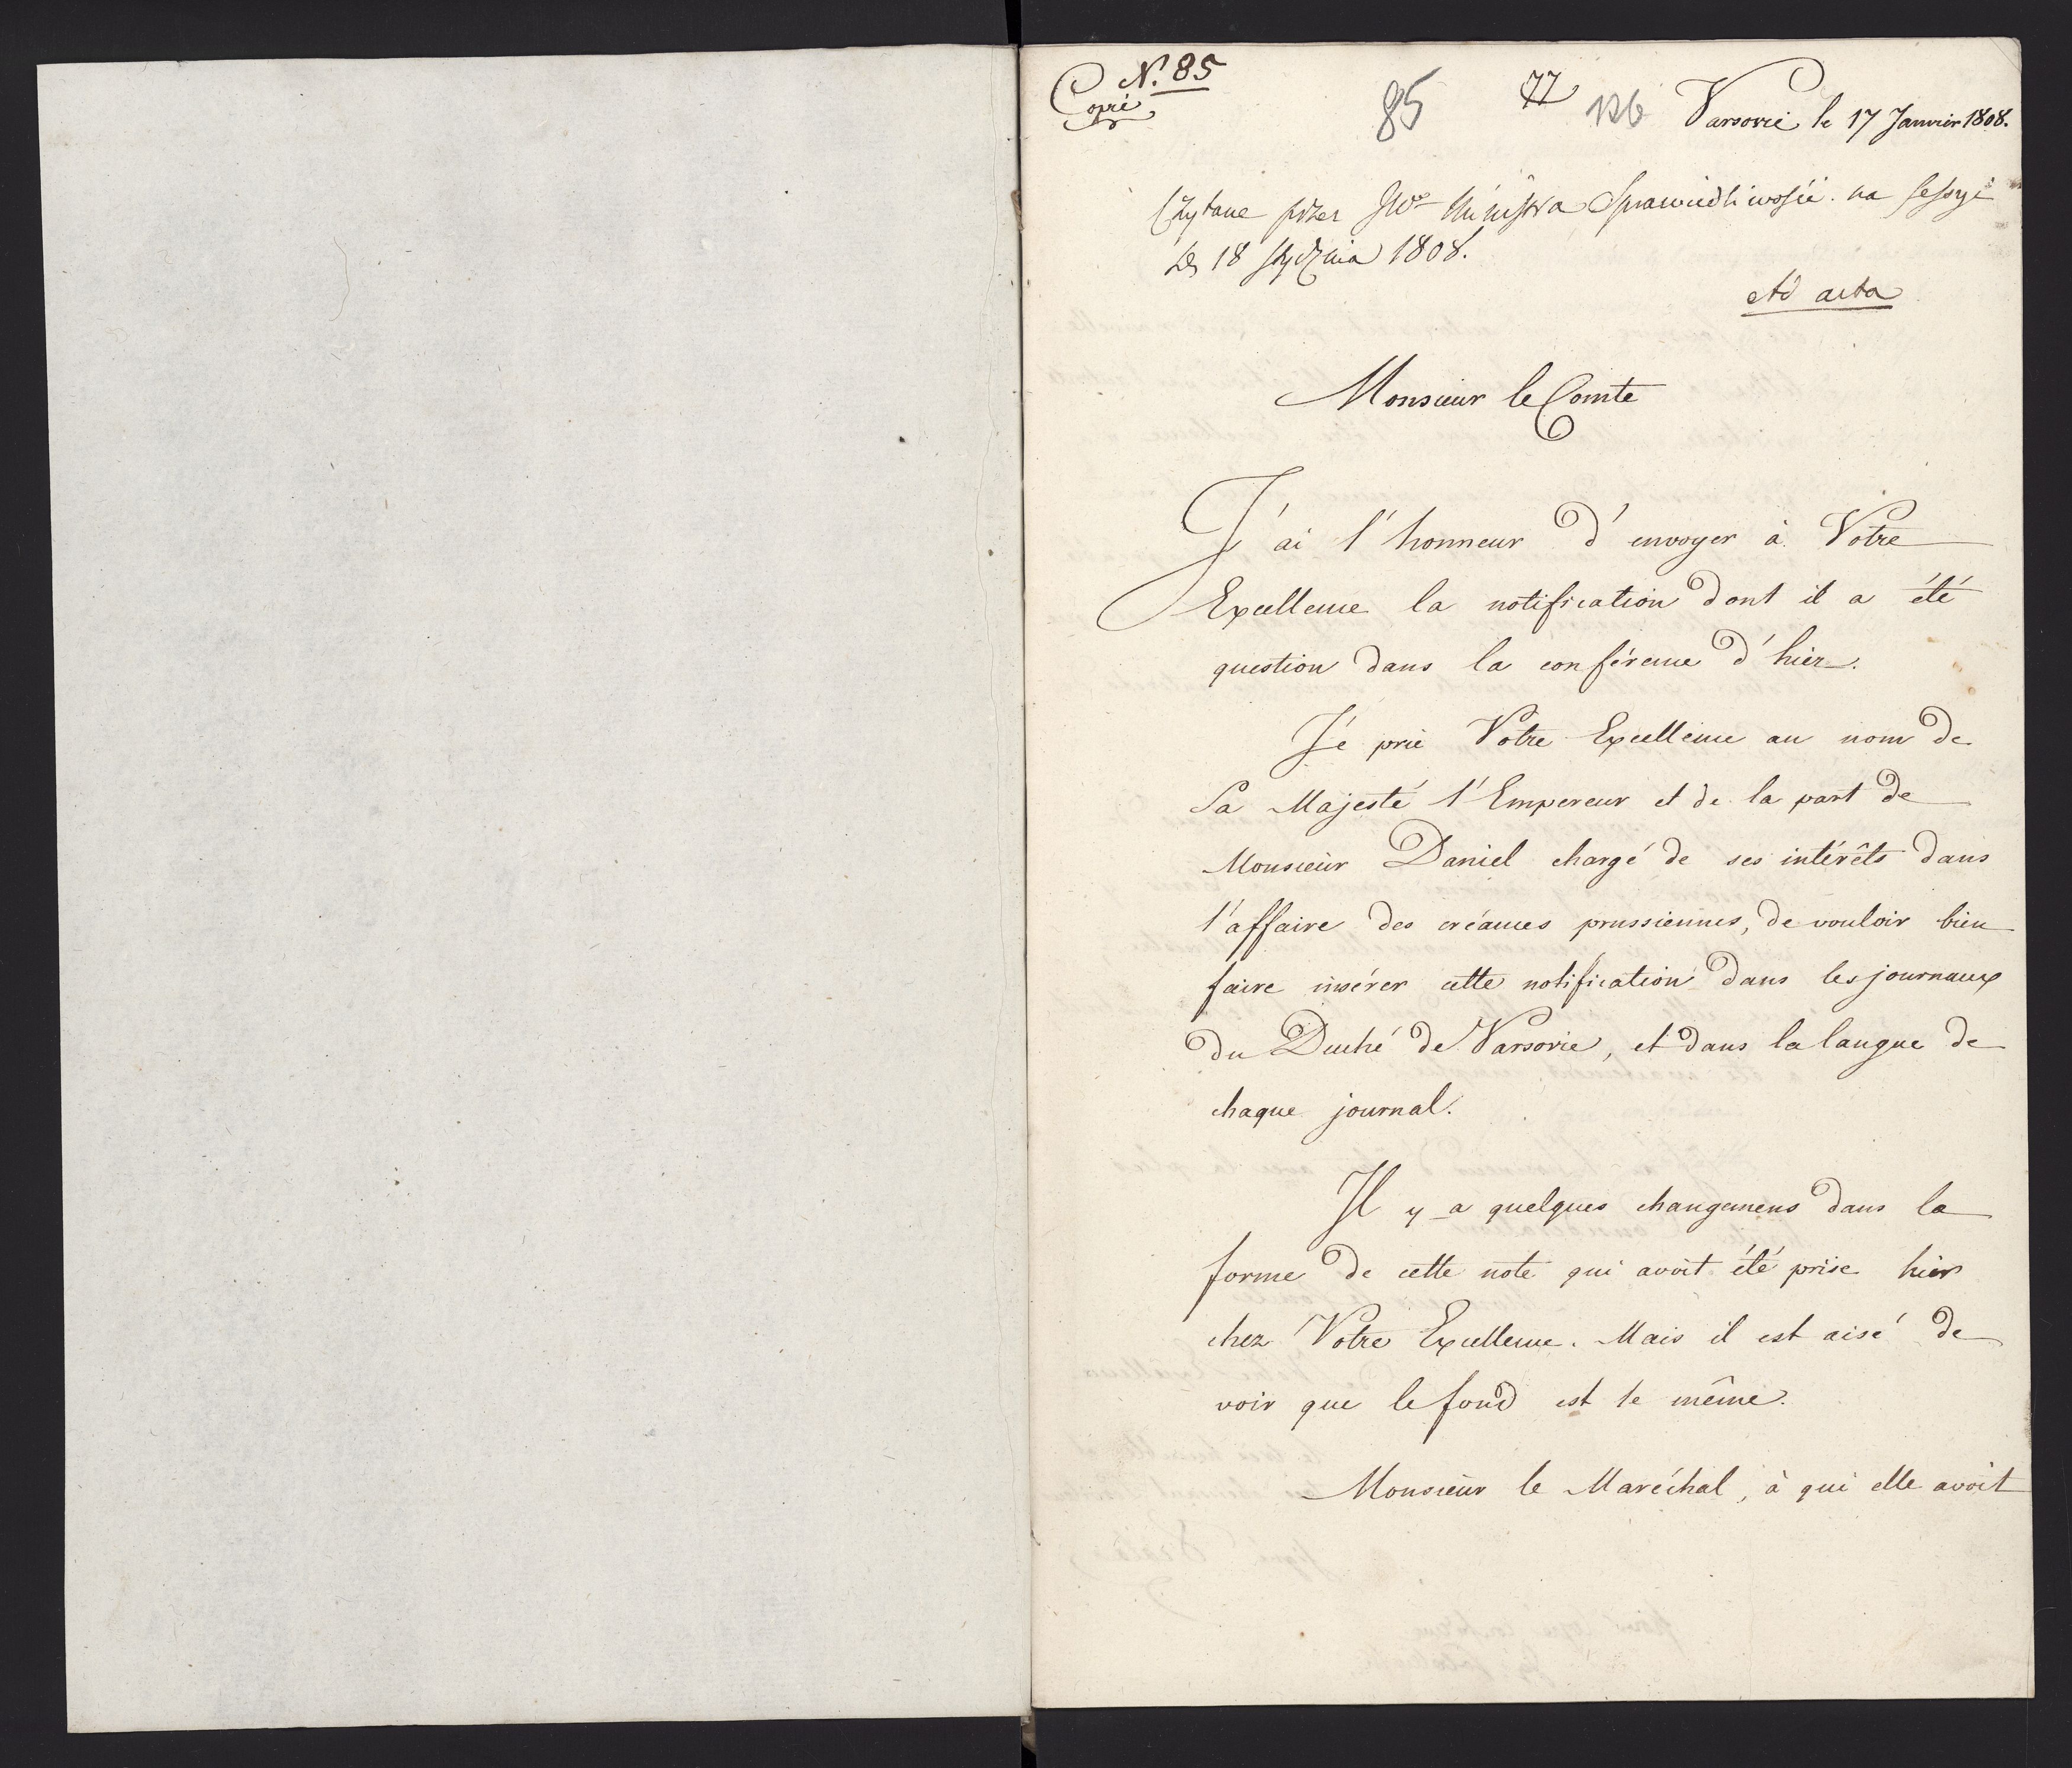 N. 85
Copié
85
77
126
Varsovie le 17 Janvier 1808.
Czytane przez JWo Ministra Sprawiedliwości na sessyi
18 Stycznia 1808.
Ad acta
Monsieur le Comte
J'ai l'honneur d'envoyer à Votre
Excellence la notification dont il a été
question dans la conférence d'hier.
Je prie Votre Excellence au nom de
Sa Majesté l'Empereur et de la part de
Monsieur Daniel chargé de ses intérêts dans
l'affaire des créances prussiennes, de vouloir bien
faire insérer cette notification dans les journaux
du Duché de Varsovie, et dans la langue de
chaque journal.
Il y a quelques changemens dans la
forme de cette note qui avoit été prise hier
chez Votre Excellence. Mais il est aisé de
voir que le fond est le même.
Monsieur le Maréchal, à qui elle avoit